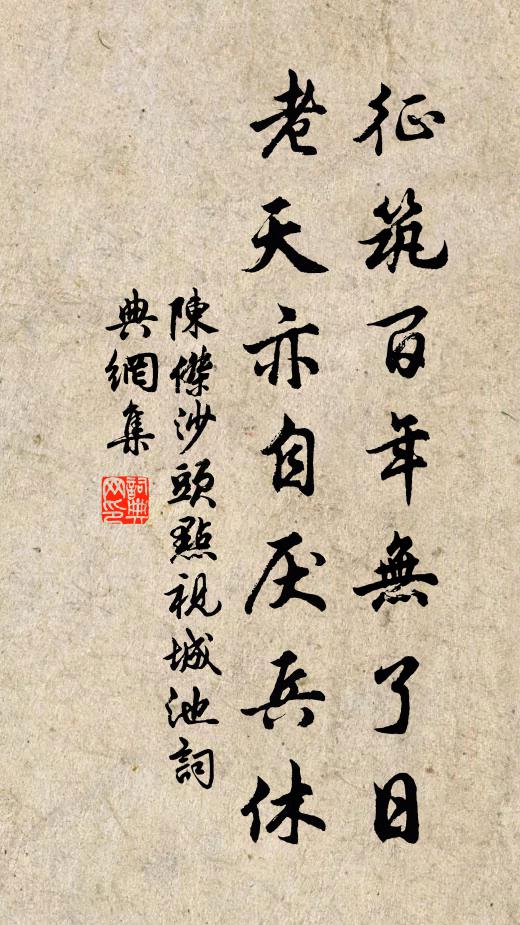 征筑百年無了日
老天亦自厌兵休
陳傑沙頭點視城池詞
典網集
詞典
网印